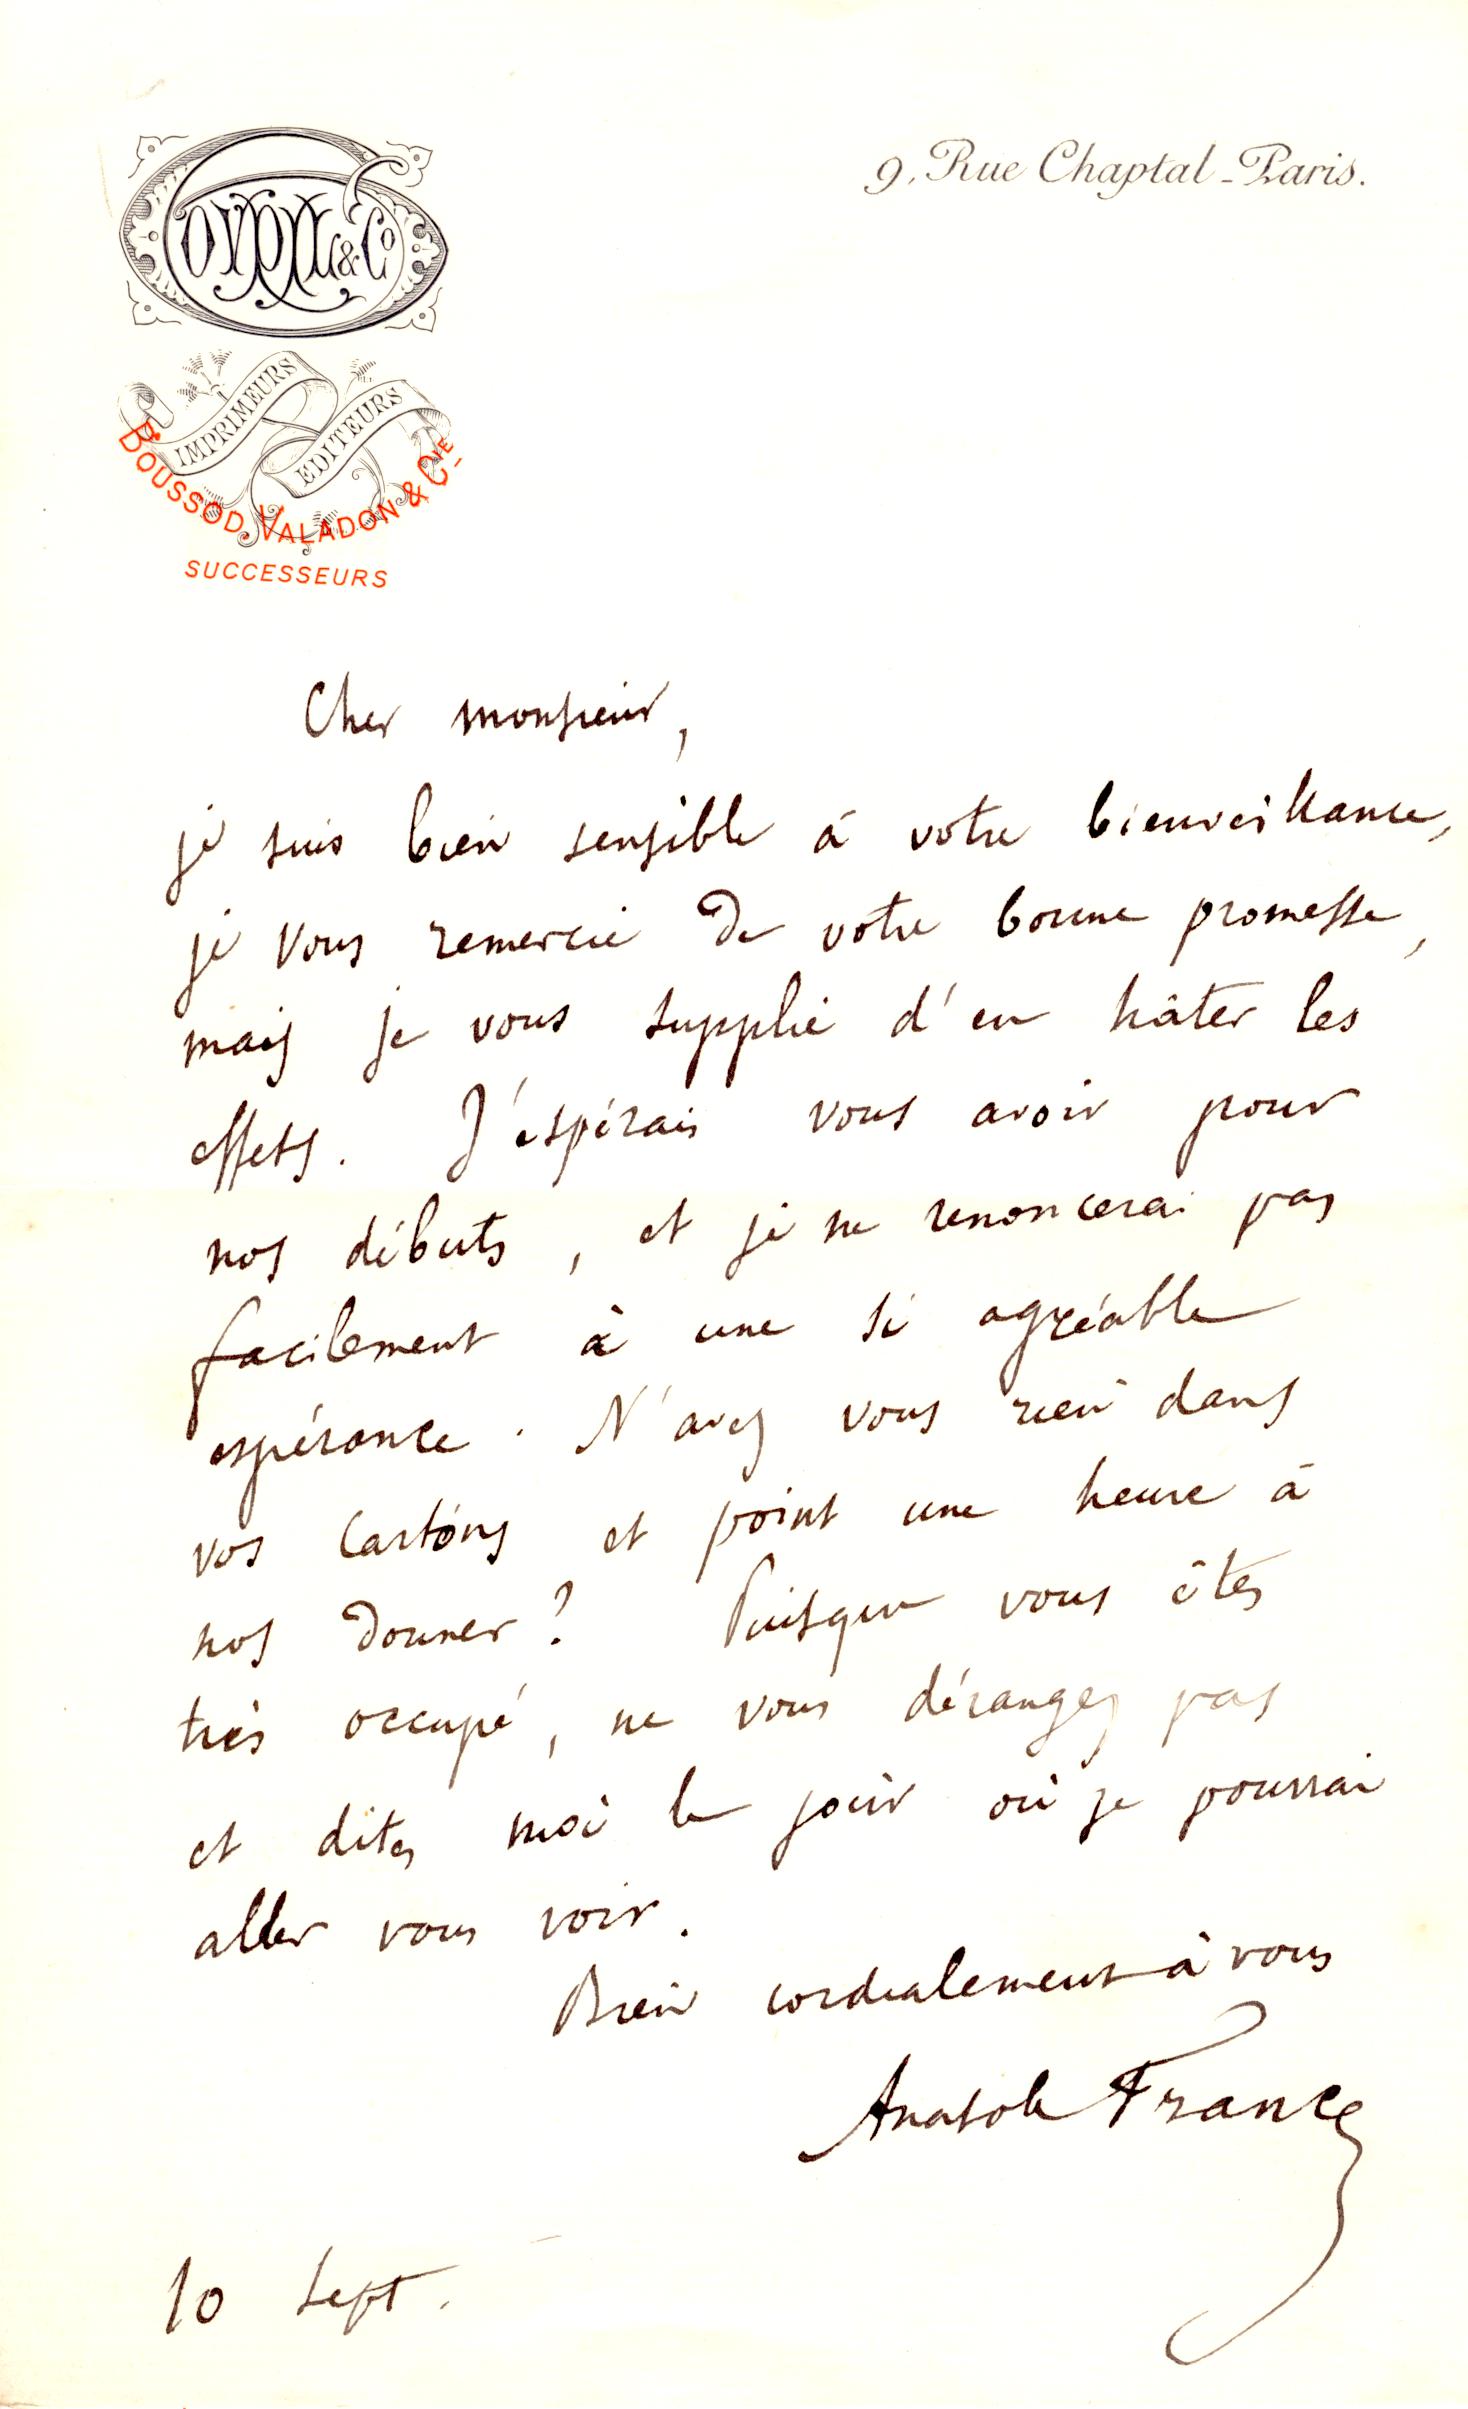 GOUPIL & Co
9, Rue Chaptal - Paris.
IMPRIMEURS
EDITEURS
BOUSSOD, VALADON & CIE
SUCCESSEURS
Cher monsieur,
je suis bien sensible à votre bienveillance,
je vous remercie de votre bonne promesse,
mais je vous supplie d'en hâter les
effets. J'espérais vous avoir pour
nos débuts, et je ne renoncerai pas
facilement à une si agréable
espérance. N'avez vous rien dans
vos cartons et point une heure à
nos donner? Puisque vous êtes
très occupé, ne vous dérangez pas
et dites moi le jour où je pourrai
aller vous voir.
Bien cordialement à vous
Anatole France
10 Sept.